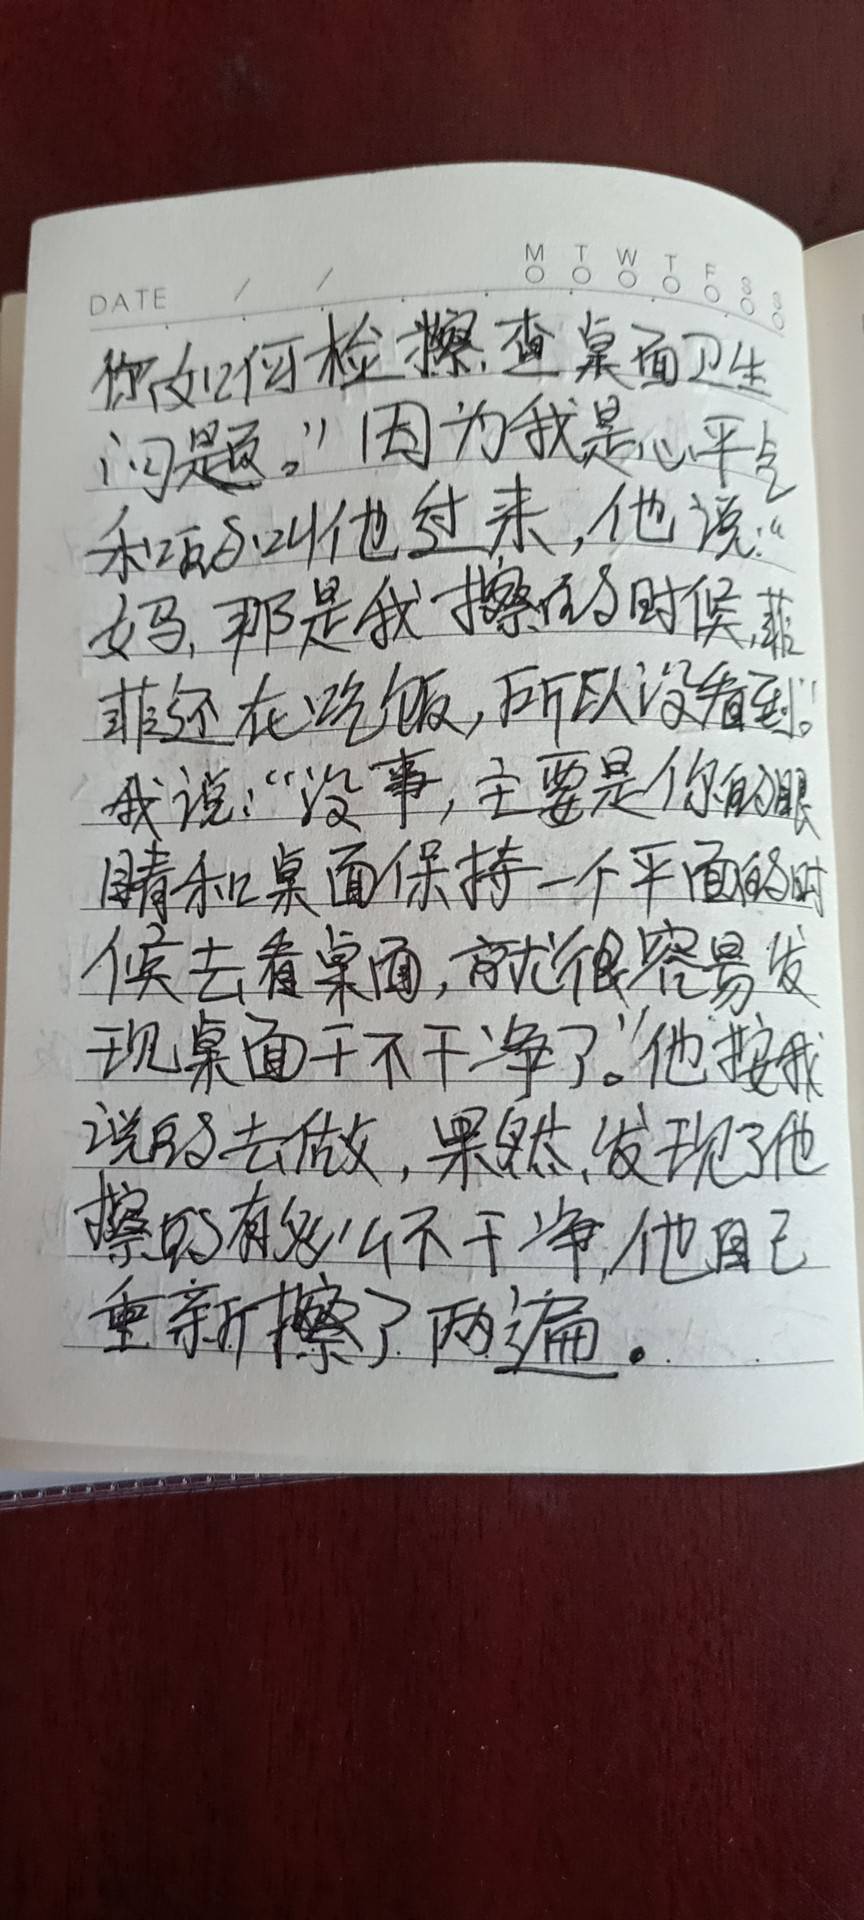 M T W T F S S
DATE / /
你如何检擦查桌面卫生
问题。”因为我是心平气
和的叫他过来，他说：“
妈，那是我擦的时候，菲
菲还在吃饭，所以没看到。”
我说：“没事，主要是你的眼
睛和桌面保持一个平面的时
候去看桌面，就很容易发
现桌面干不干净了。”他按我
说的去做，果然，发现了他
擦的有多么不干净，他自己
重新擦了两遍。